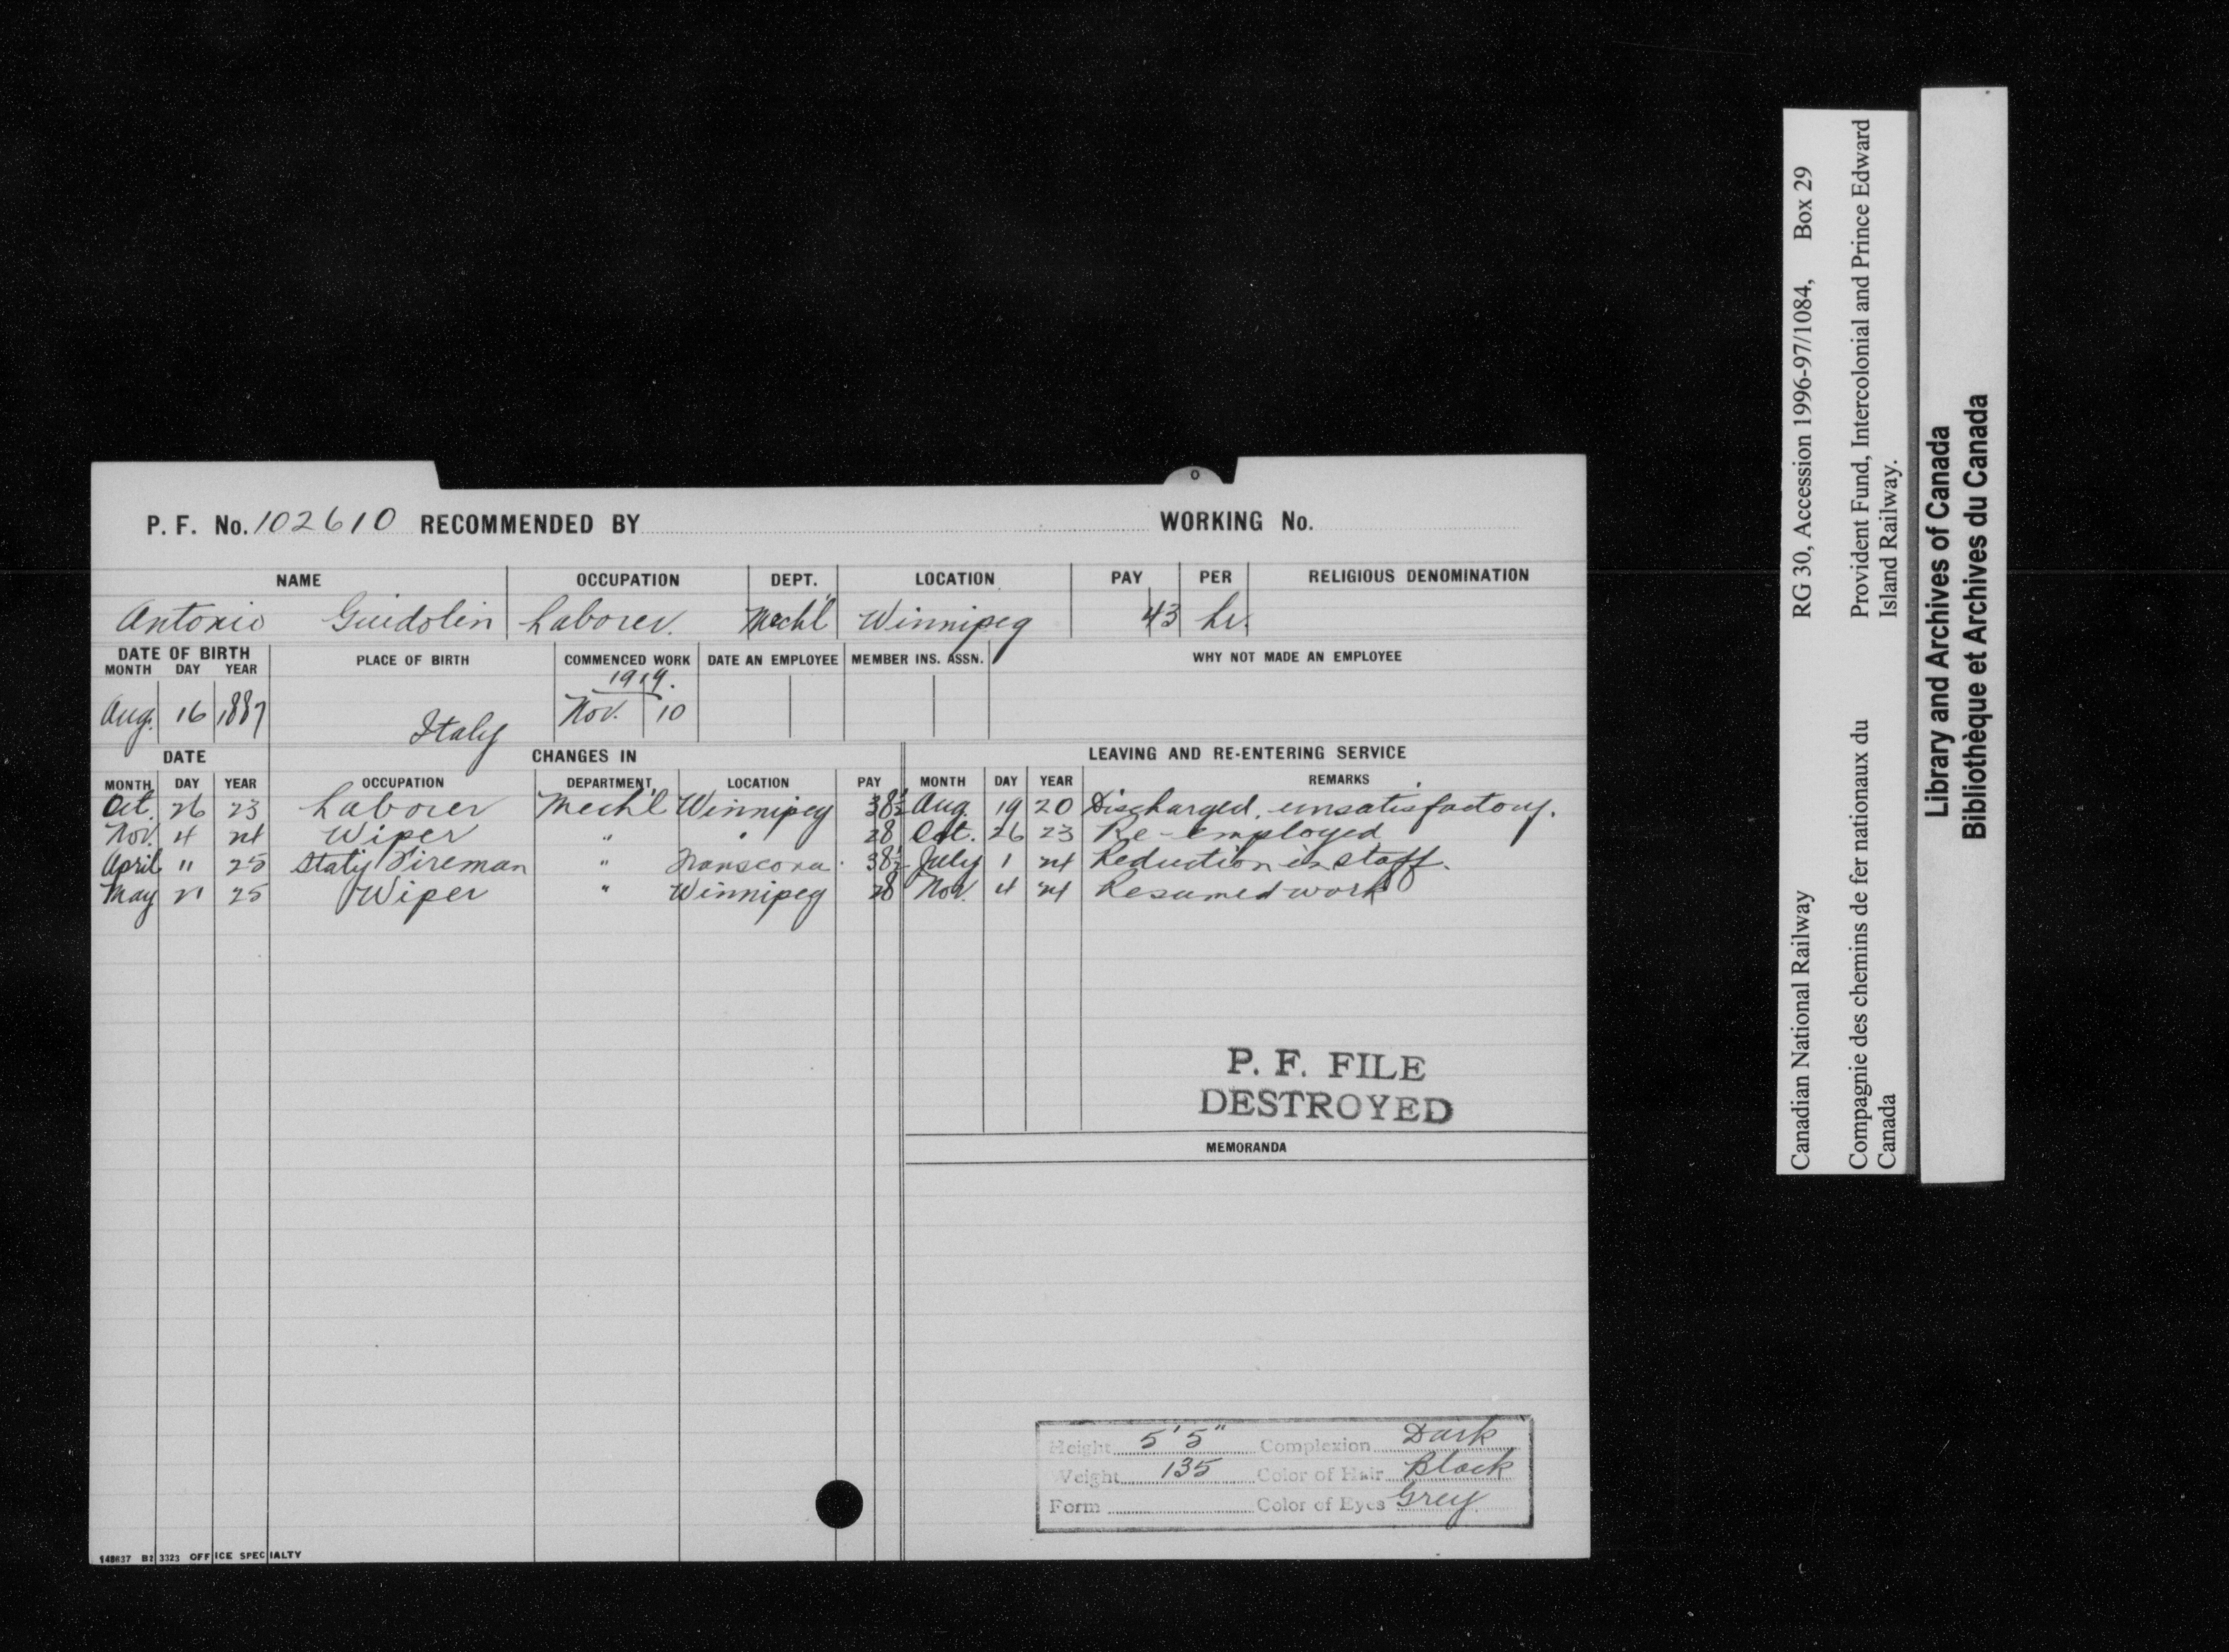 P. F. No. 102610 RECOMMENDED BY WORKING No.
NAME OCCUPATION DEPT. LOCATION PAY PER RELIGIOUS DENOMINATION
Antonio Guidolin Laborer. Mech'l Winnipeg 43 hr.
DATE OF BIRTH PLACE OF BIRTH COMMENCED WORK DATE AN EMPLOYEE MEMBER INS. ASSN. WHY NOT MADE AN EMPLOYEE
MONTH DAY YEAR
1919.
Aug. 16 1887 Italy Nov. 10
DATE CHANGES IN LEAVING AND RE-ENTERING SERVICE
MONTH DAY YEAR OCCUPATION DEPARTMENT LOCATION PAY MONTH DAY YEAR REMARKS
Oct. 26 23 Laborer Mech'l Winnipeg 38½ Aug. 19 20 Discharged, unsatisfactory.
Nov. 4 24 Wiper " " 28 Oct. 26 23 Re-employed
April 11 25 Stat'y Fireman " Transcona. 38½ July 1 24 Reduction in staff.
May 21 25 Wiper " Winnipeg 28 Nov. 4 24 Resumed work
P. F. FILE
DESTROYED
MEMORANDA
Height 5'5" Complexion Dark
Weight 135 Color of Hair Black
Form Color of Eyes Grey
148637 B2 3323 OFFICE SPECIALTY
Canadian National Railway RG 30, Accession 1996-97/1084, Box 29
Compagnie des chemins de fer nationaux du Provident Fund, Intercolonial and Prince Edward
Canada Island Railway.
Library and Archives of Canada
Bibliothèque et Archives du Canada